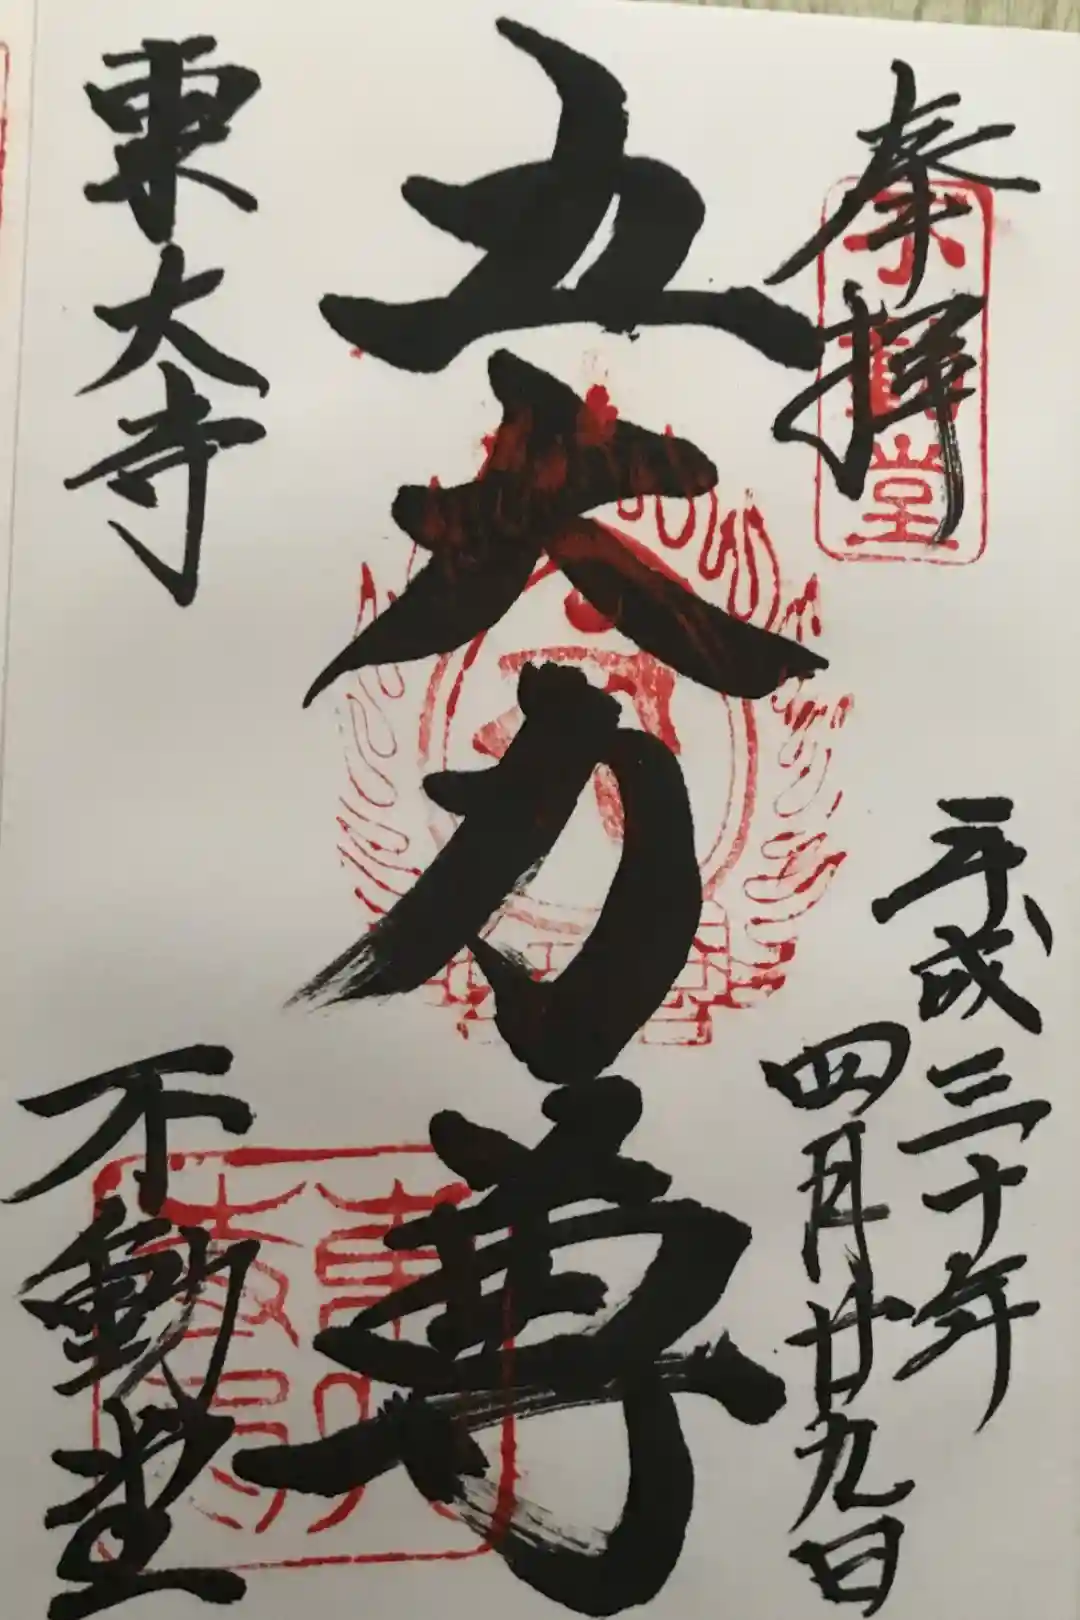 奉拝
平成三十年
四月廿九日
五大力尊
東大寺
不動堂